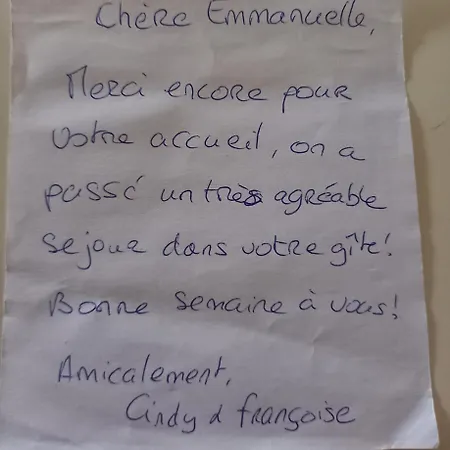 Chère Emmanuelle,
Merci encore pour
votre accueil, on a
passé un très agréable
sejour dans votre gîte!
Bonne semaine à vous!
Amicalement,
Cindy & françoise